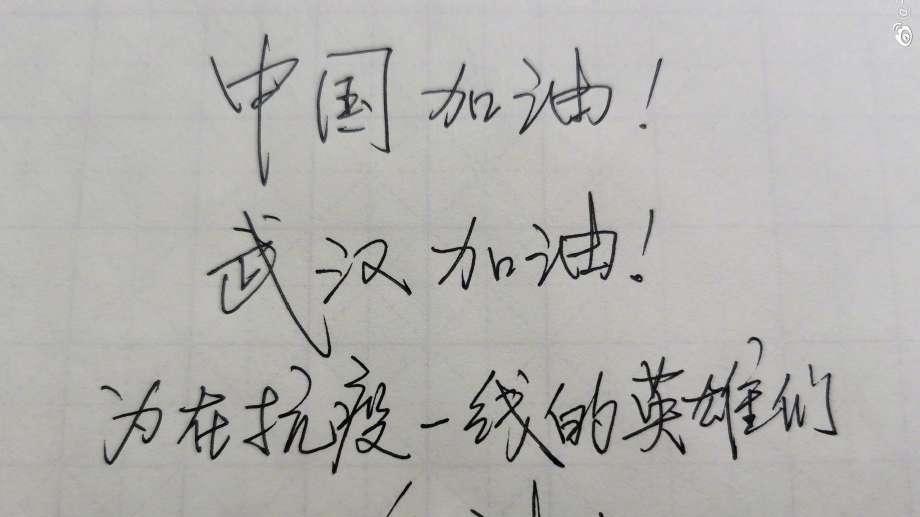 中国加油！
武汉加油！
为在抗疫一线的英雄们